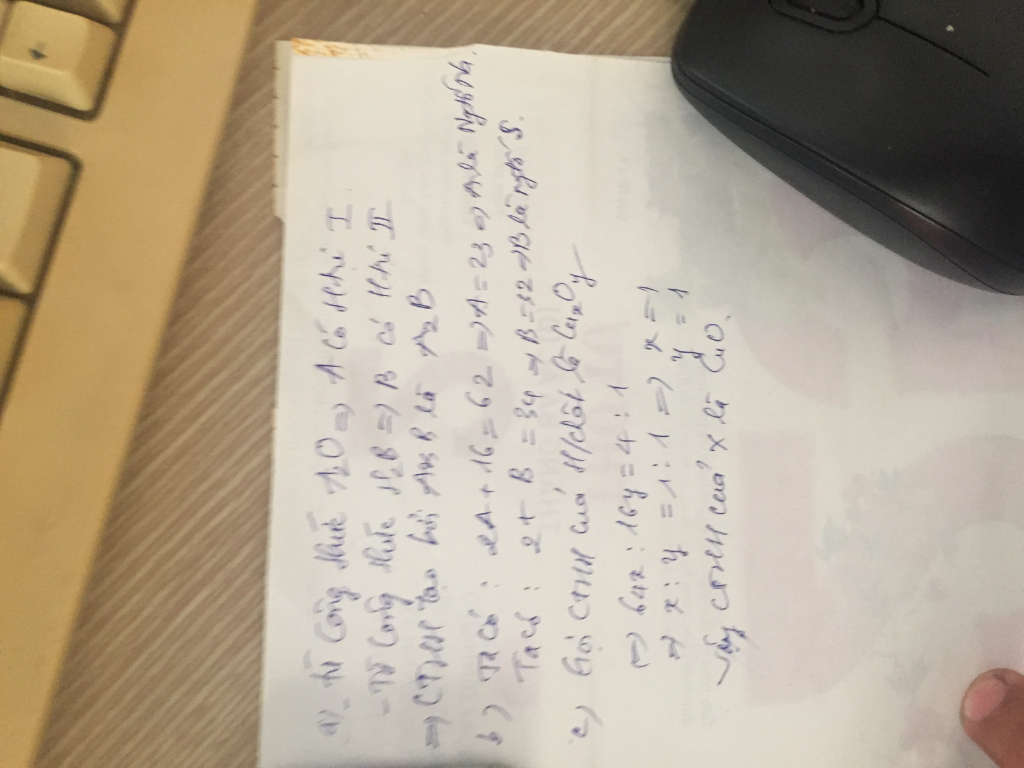 a) - Từ công thức A2O => A có hoá trị I.
- Từ công thức H2B => B có hoá trị II
=> CTHH tạo bởi A và B là A2B
b) Ta có : 2A + 16 = 62 => A = 23 => A là Ng tố Na.
Ta có : 2 + B = 34 => B = 32 => B là ng tố S.
c) Gọi CTHH của H/chất là CuxOy
=> 64x : 16y = 4 : 1
=> x : y = 1 : 1 => x = 1
y = 1
Vậy CTHH của X là CuO.